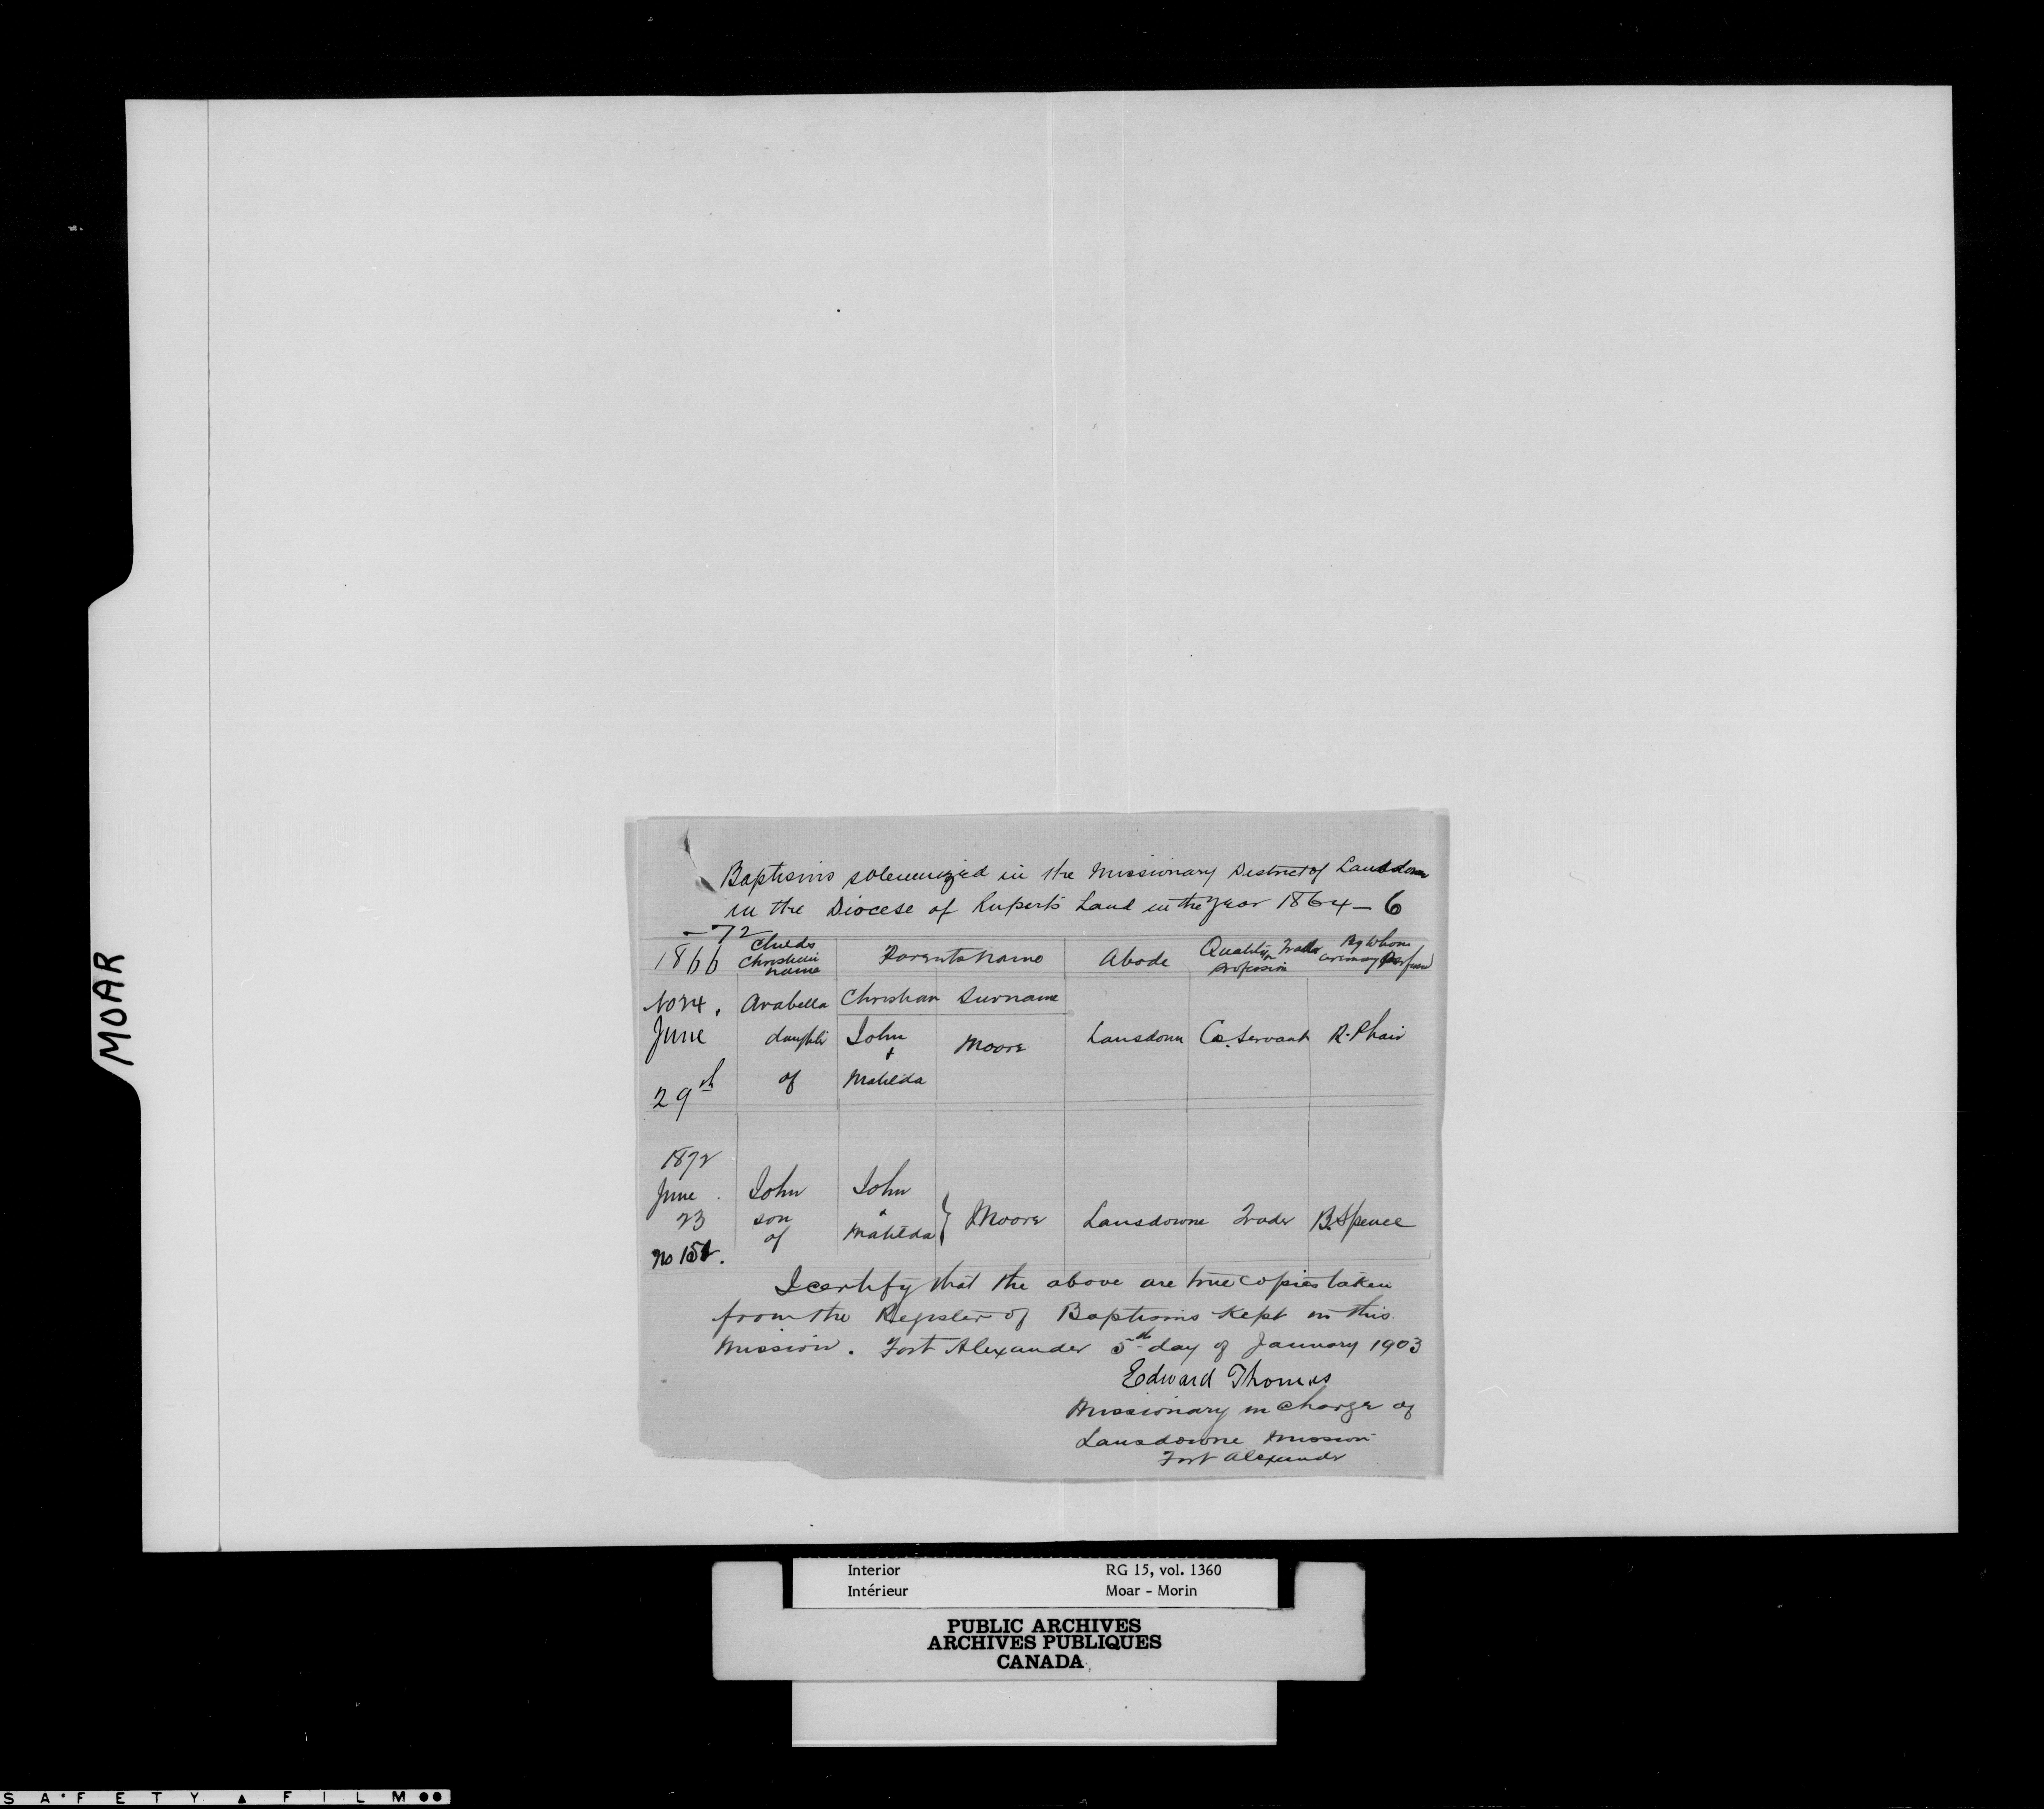 MOAR
Baptisms solemnized in the Missionary District of Lansdown
in the Diocese of Ruperts Land in the Year 1864 - 6
- 72
1866 Childs Christian name Parents name Abode Quality Trade or Profession By Whom ceremony Performed
No 24. Arabella Christian Surname
June daughter John + Moore Lansdown Co. Servant R. Phair
29th of Matilda
1872
June John John
23 son of & Matilda } Moore Lansdowne Trader B. Spence
No 152.
I certify that the above are true copies taken
from the Register of Baptisms kept in this
Mission. Fort Alexander 5th day of January 1903
Edward Thomas
Missionary in Charge of
Lansdowne Mission
Fort Alexander
Interior RG 15, vol. 1360
Intérieur Moar - Morin
PUBLIC ARCHIVES
ARCHIVES PUBLIQUES
CANADA
SAFETY FILM